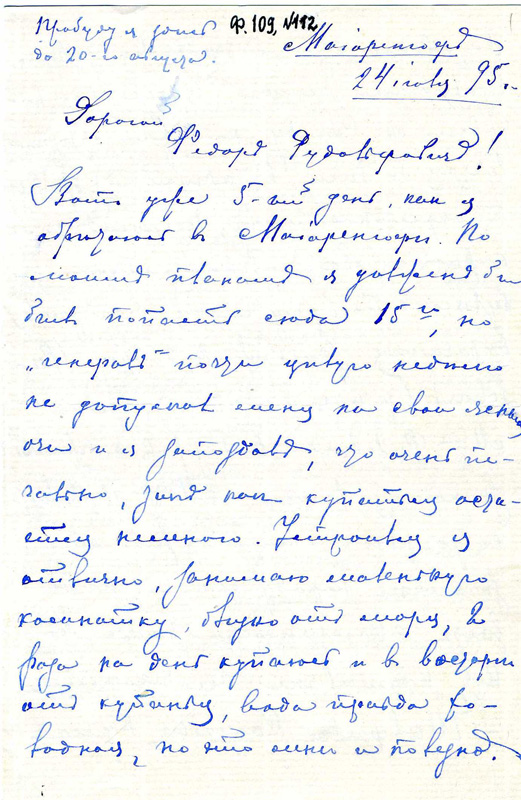 Пробуду я здесь
до 20-го августа.
Ф. 109, №192
Маіоренгофъ
24 іюля 95 г.
Дорогой
Федоръ Рудольфовичъ!
Вотъ уже 5-ый день, как я
обретаюсь в Маіоренгофе. По
моимъ планамъ я долженъ бы
былъ попасть сюда 15го, но
„генералъ" почти целую неделю
не допускал меня на свои ясныя
очи и я запоздалъ, что очень пе-
чально, как купаться оста-
ется немного. Устроился я
отлично, занимаю маленькую
комнатку, близко отъ моря, 2
раза на день купаюсь и в восторге
отъ купанья, вода правда хо-
лодная, но это мне и полезно.